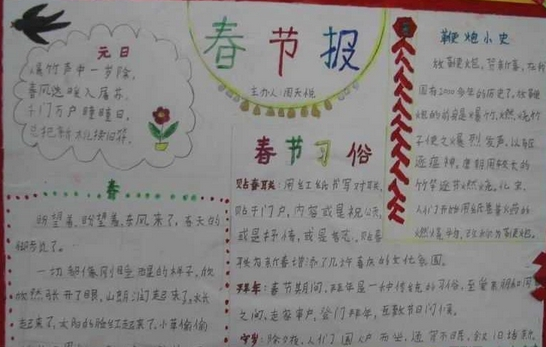 春节报
主办人:周天悦
元日
爆竹声中一岁除,
春风送暖入屠苏。
千门万户曈曈日,
总把新桃换旧符。
春
盼望着,盼望着,东风来了,春天的
脚步近了。
一切都像刚睡醒的样子,欣
欣然张开了眼。山朗润起来了,水长
起来了,太阳的脸红起来了。小草偷偷
春节习俗
贴春联:用红纸书写对联,
贴于门户,内容或是祝公天,
或是抒情,或是 贴春
联为新春增添了几许喜庆的文化氛围。
拜年:春节期间,拜年是一种传统的习俗,至爱亲朋和同
之间,走家串户,登门拜年,互致节日问候。
守岁:除夕夜,人们围炉而坐,通宵不眠,叙旧话新,
鞭炮小史
放鞭炮,贺新春,在我
国有2000余年的历史了。放鞭
炮的前身是爆竹,燃烧竹
子使之爆烈发声,以驱
逐瘟神。唐朝用较长的
竹竿逐节燃烧。北宋,
人们开始用纸卷裹火药的
燃烧物,改称为鞭炮。